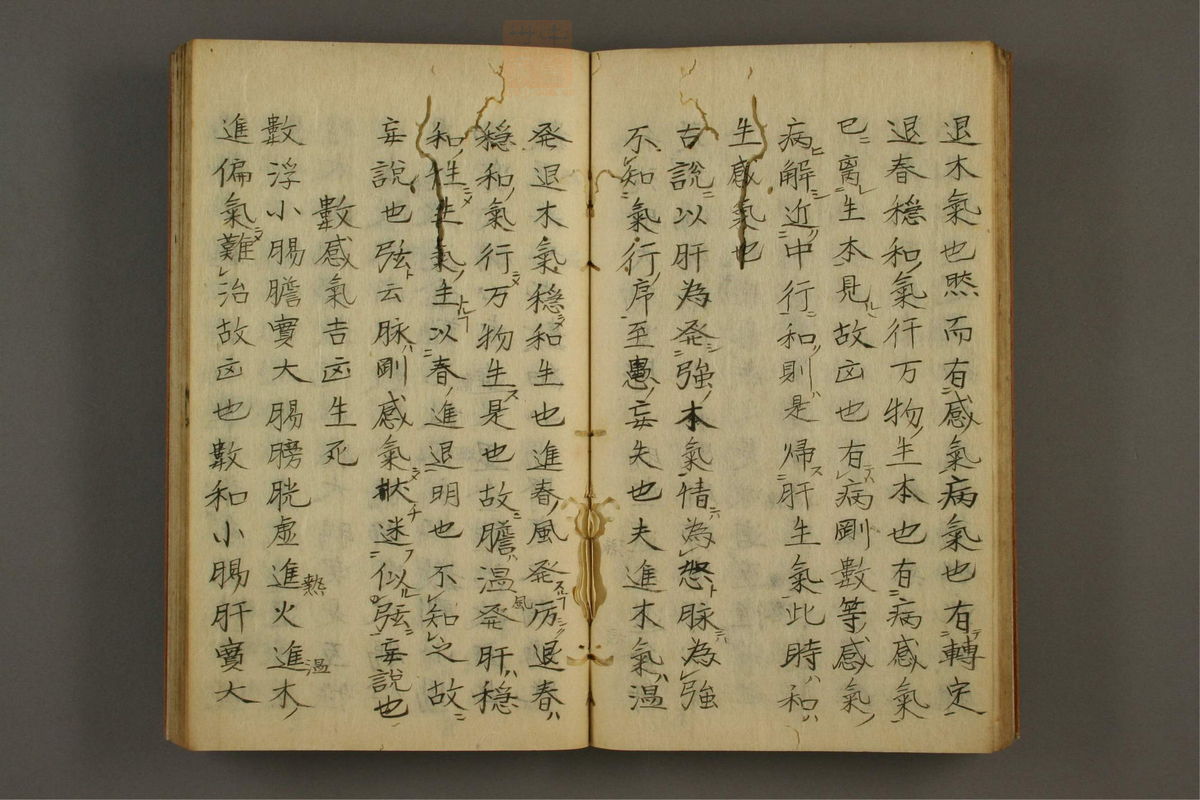 退木氣也然而有感氣病氣也有轉定
退春穏和氣行万物生本也有病感氣
已离生本見故凶也有病剛數等感氣
病解近中行和則是帰肝生氣此時和
生感氣也
古說以肝為発強本氣情為怒脉為強
不知氣行序至愚妄失也夫進木氣温
発退木氣穏和生也進春風発厉退春
穏和氣行万物生是也故膽温風発肝穏
和性生氣主以春進退明也不知之故
妄說也弦云脉剛感氣状迷似弦妄說也
數感氣吉凶生死
數浮小腸膽實大腸膀胱虚進火熱進木温
進偏氣難治故凶也數和小腸肝實大